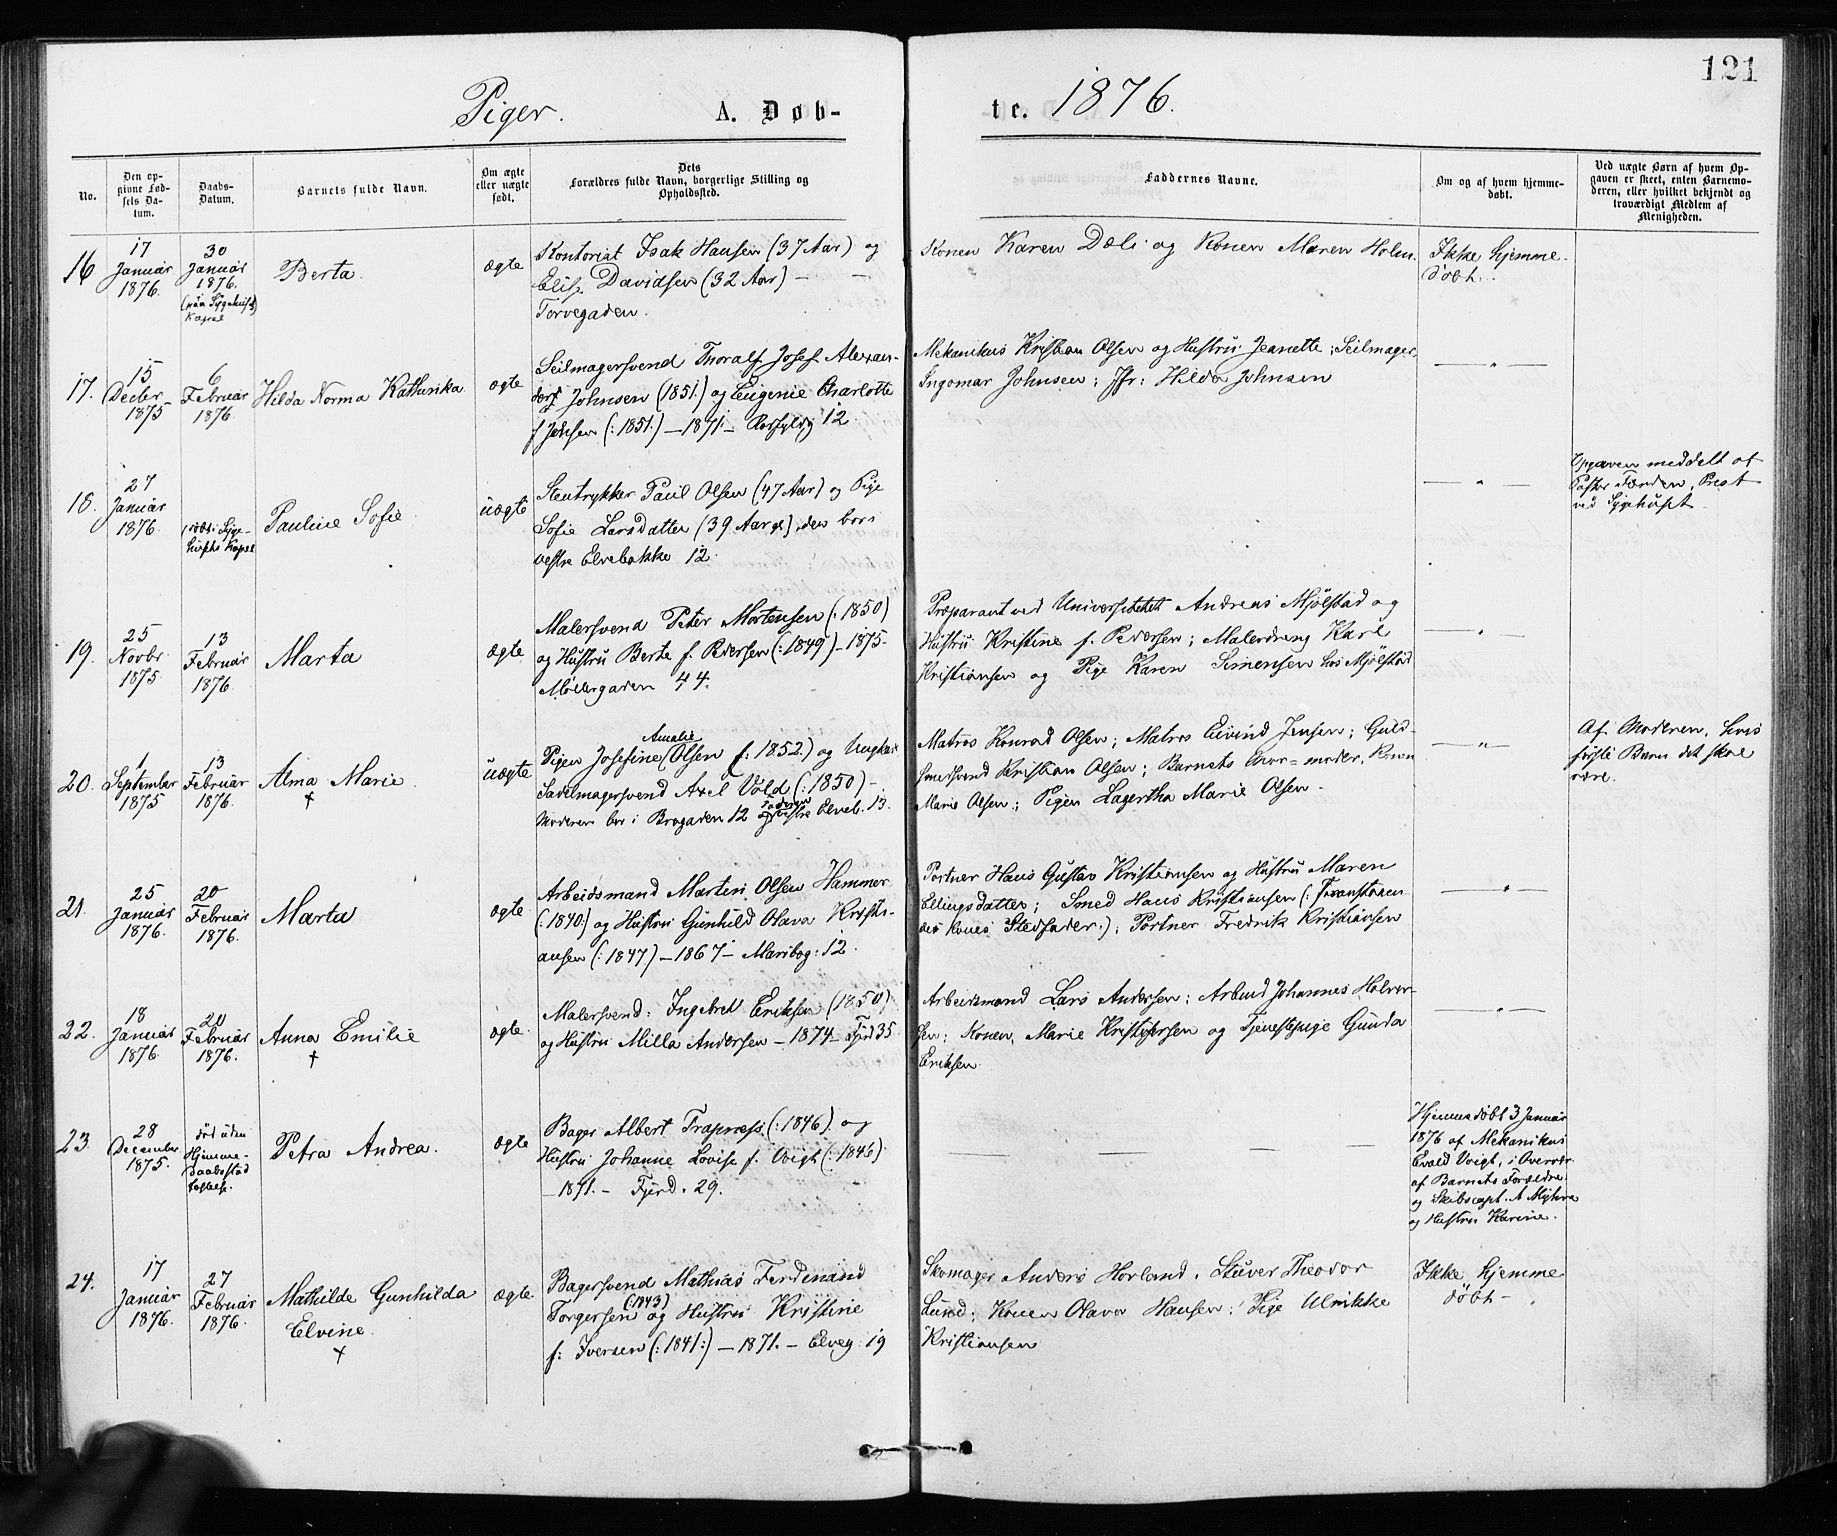 121
Piger. A. Døb-
te. 1876.
No.
Den op-
givne Fød-
sels Da-
tum.
Daabs-
Datum.
Barnets fulde Navn.
Om ægte
eller uægte
født.
Dets
Forældres fulde Navn, borgerlige Stilling og
Opholdssted.
Faddernes Navne.
Om og af hvem hjemme-
døbt.
Ved uægte Børn af hvem Op-
gaven er skeet, enten Barnemo-
deren, eller hvilket bekjendt og
troværdigt Medlem af
Menigheden.
16
17
Januar
1876.
30
Januar
1876.
Kapel
Berta.
ægte
Kontorist Isak Hansen (37 Aar) og
Elise Davidsen (32 Aar) —
Torvegaden.
Konen Karen Dæli og Konen Maren Holm.
Ikke hjemme-
døbt.
17.
15
Decbr
1875
6
Februar
1876.
Hilda Norma Kathinka
ægte
Seilmagersvend Thoralf Josef Alexan-
Johnsen (1851.) og Eugenie Charlotte
f Jensen (: 1851.) — 1871 — 12.
Mekanikus Kristian Olsen og Hustru Jeanette; Seilmager
Ingomar Johnsen; Jfr: Hilda Johnsen
— " —
18.
27
Januar
1876.
(døbt i Syge-
husets Kapel
Pauline Sofie
uægte
Stentrykker Paul Olsen (47 Aar) og Pige
Sofie Larsdatter (39 Aar gl.), den bor i
vestre Elvebakke 12.
— " —
Opgaven meddelt af
Pastor Færden, Prest
ved Sygehuset.
19.
25
Novbr
1875
13
Februar
1876.
Marta
ægte
Malersvend Peter Mortensen (: 1850)
og Hustru Berte f. Pedersen (: 1849) — 1875.
Møllergaden 44.
Præparant ved Universitetet Andreas Mjølstad og
Hustru Kristine f. Pedersen; Malerdreng Karl
Kristiansen og Pige Karen Simensen hos Mjølstad
— " —
20.
1
September
1875
13
Februar
1876.
Alma Marie.
+
uægte
Amalie
Pigen Josefine (Olsen f: 1852.) og Ungkarl
Sadelmagersvend Axel Vold (: 1850) —
Moderen bor i Brogaden 12 Faderen vestre Elveb. 13.
Matros Konrad Olsen; Matros Eivind Jensen; Guld-
smedsvend Kristian Olsen; Barnets Mor=moder, Konen
Marie Olsen; Pigen Lagertha Marie Olsen.
— " —
Af Moderen, hvis
første Barn det skal
være.
21.
25
Januar
1876.
20
Februar
1876.
Marta
ægte
Arbeidsmand Martin Olsen Hammer
(: 1840:) og Hustru Gunhild Olava Kristi-
ansen (: 1847.) — 1867 — Maribog: 12.
Portner Hans Gustav Kristiansen og Hustru Maren
Ellingsdatter; Smed Hans Kristiansen (: Foranstaaen
des Kones Stedfader.); Portner Fredrik Kristiansen
— " —
22.
18
Januar
1876
20
Februar
1876.
Anna Emilie
+
ægte
Malersvend: Ingebret Eriksen (1850)
og Hustru Milla Andersen — 1874 — Fjrd 35
Arbeidsmand Lars Andersen; Arbmd Johannes Halvor-
sen; Konen Marie Kristofersen og Tjenestepige Gunda
Eriksen.
— " —
23
28
December
1875.
død uden
Hjemme-
daabsstad
festelse.
Petra Andrea.
ægte
Bager Albert Trapness (: 1846) og
Hustru Johanne Lovise f. Voigt (: 1846)
— 1871. — Fjerd. 29.
— — —
Hjemmedøbt 3 Januar
1876 af Mekanikus
Evald Voigt, i Overvær
af Barnets Forældre
og Skibscapt. A Myhra
og Hustru Karine.
24.
17
Januar
1876.
27
Februar
1876.
Mathilde Gunhilda
Elvine.
+
ægte
Bagersvend Mathias Ferdinand
Torgersen (: 1843) og Hustru Kristine
f: Iversen (: 1841:) — 1871. — Elveg. 19
Skomager Anders Hovland. Stuver Theodor
Lund; Konen Olava Hansen; Pige Ulrikke
Kristiansen
Ikke hjemme
døbt —